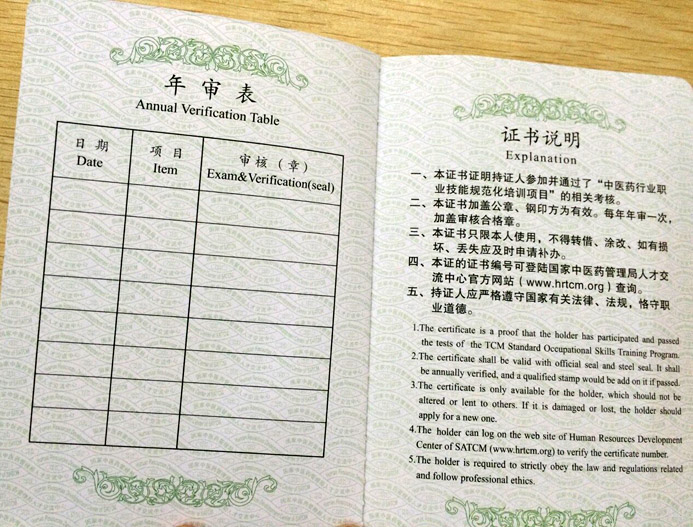 年审表
Annual Verification Table
日期
Date
项目
Item
审核（章）
Exam&Verification(seal)
证书说明
Explanation
一、本证书证明持证人参加并通过了“中医药行业职
业技能规范化培训项目”的相关考核。
二、本证书加盖公章、钢印方为有效。每年年审一次，
加盖审核合格章。
三、本证书只限本人使用，不得转借、涂改、如有损
坏、丢失应及时申请补办。
四、本证的证书编号可登陆国家中医药管理局人才交
流中心官方网站（www.hrtcm.org）查询。
五、持证人应严格遵守国家有关法律、法规，恪守职
业道德。
1.The certificate is a proof that the holder has participated and passed
the tests of the TCM Standard Occupational Skills Training Program.
2.The certificate shall be valid with official seal and steel seal. It shall
be annually verified, and a qualified stamp would be add on it if passed.
3.The certificate is only available for the holder, which should not be
altered or lent to others. If it is damaged or lost, the holder should
apply for a new one.
4.The holder can log on the web site of Human Resources Development
Center of SATCM (www.hrtcm.org) to verify the certificate number.
5.The holder is required to strictly obey the law and regulations related
and follow professional ethics.